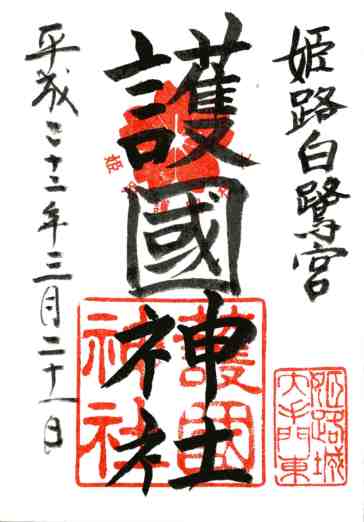 姫路白鷺宮
護國神社
平成二十二年三月二十一日
護國
神社
姫路城
大手門東